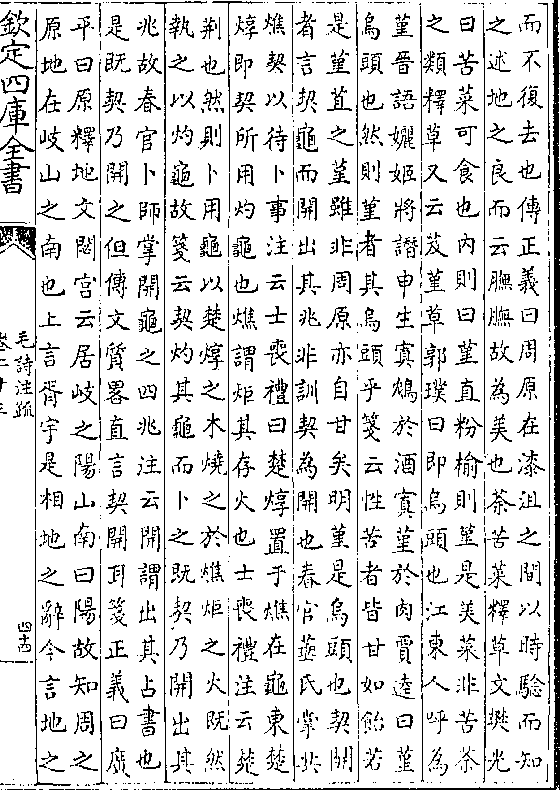 而不復去也傳正義曰周原在漆沮之間以時驗而知
之述地之良而云膴膴故為美也荼苦菜釋草文樊光
曰苦菜可食也內則曰堇直粉榆則堇是美菜非苦荼
之類釋草又云芨堇草郭璞曰即烏頭也江東人呼為
堇晉語孋姬將譖申生寘鴆於酒寘堇於肉賈逵曰堇
烏頭也然則堇者其烏頭乎箋云性苦者皆甘如飴若
是堇荁之堇雖非周原亦自甘矣明堇是烏頭也契開
者言契龜而開出其兆非訓契為開也春官菙氏掌共
燋契以待卜事注云士喪禮曰楚焞置于燋在龜東楚
焞即契所用灼龜也燋謂炬其存火也士喪禮注云楚
荊也然則卜用龜以楚焞之木燒之於燋炬之火既然
執之以灼龜故箋云契灼其龜而卜之既契乃開出其
兆故春官卜師掌開龜之四兆注云開謂出其占書也
是既契乃開之但傳文質畧直言契開耳箋正義曰廣
平曰原釋地文閟宮云居岐之陽山南曰陽故知周之
原地在岐山之南也上言胥宇是相地之辭今言地之
欽定四庫全書
毛詩注疏
卷二十三